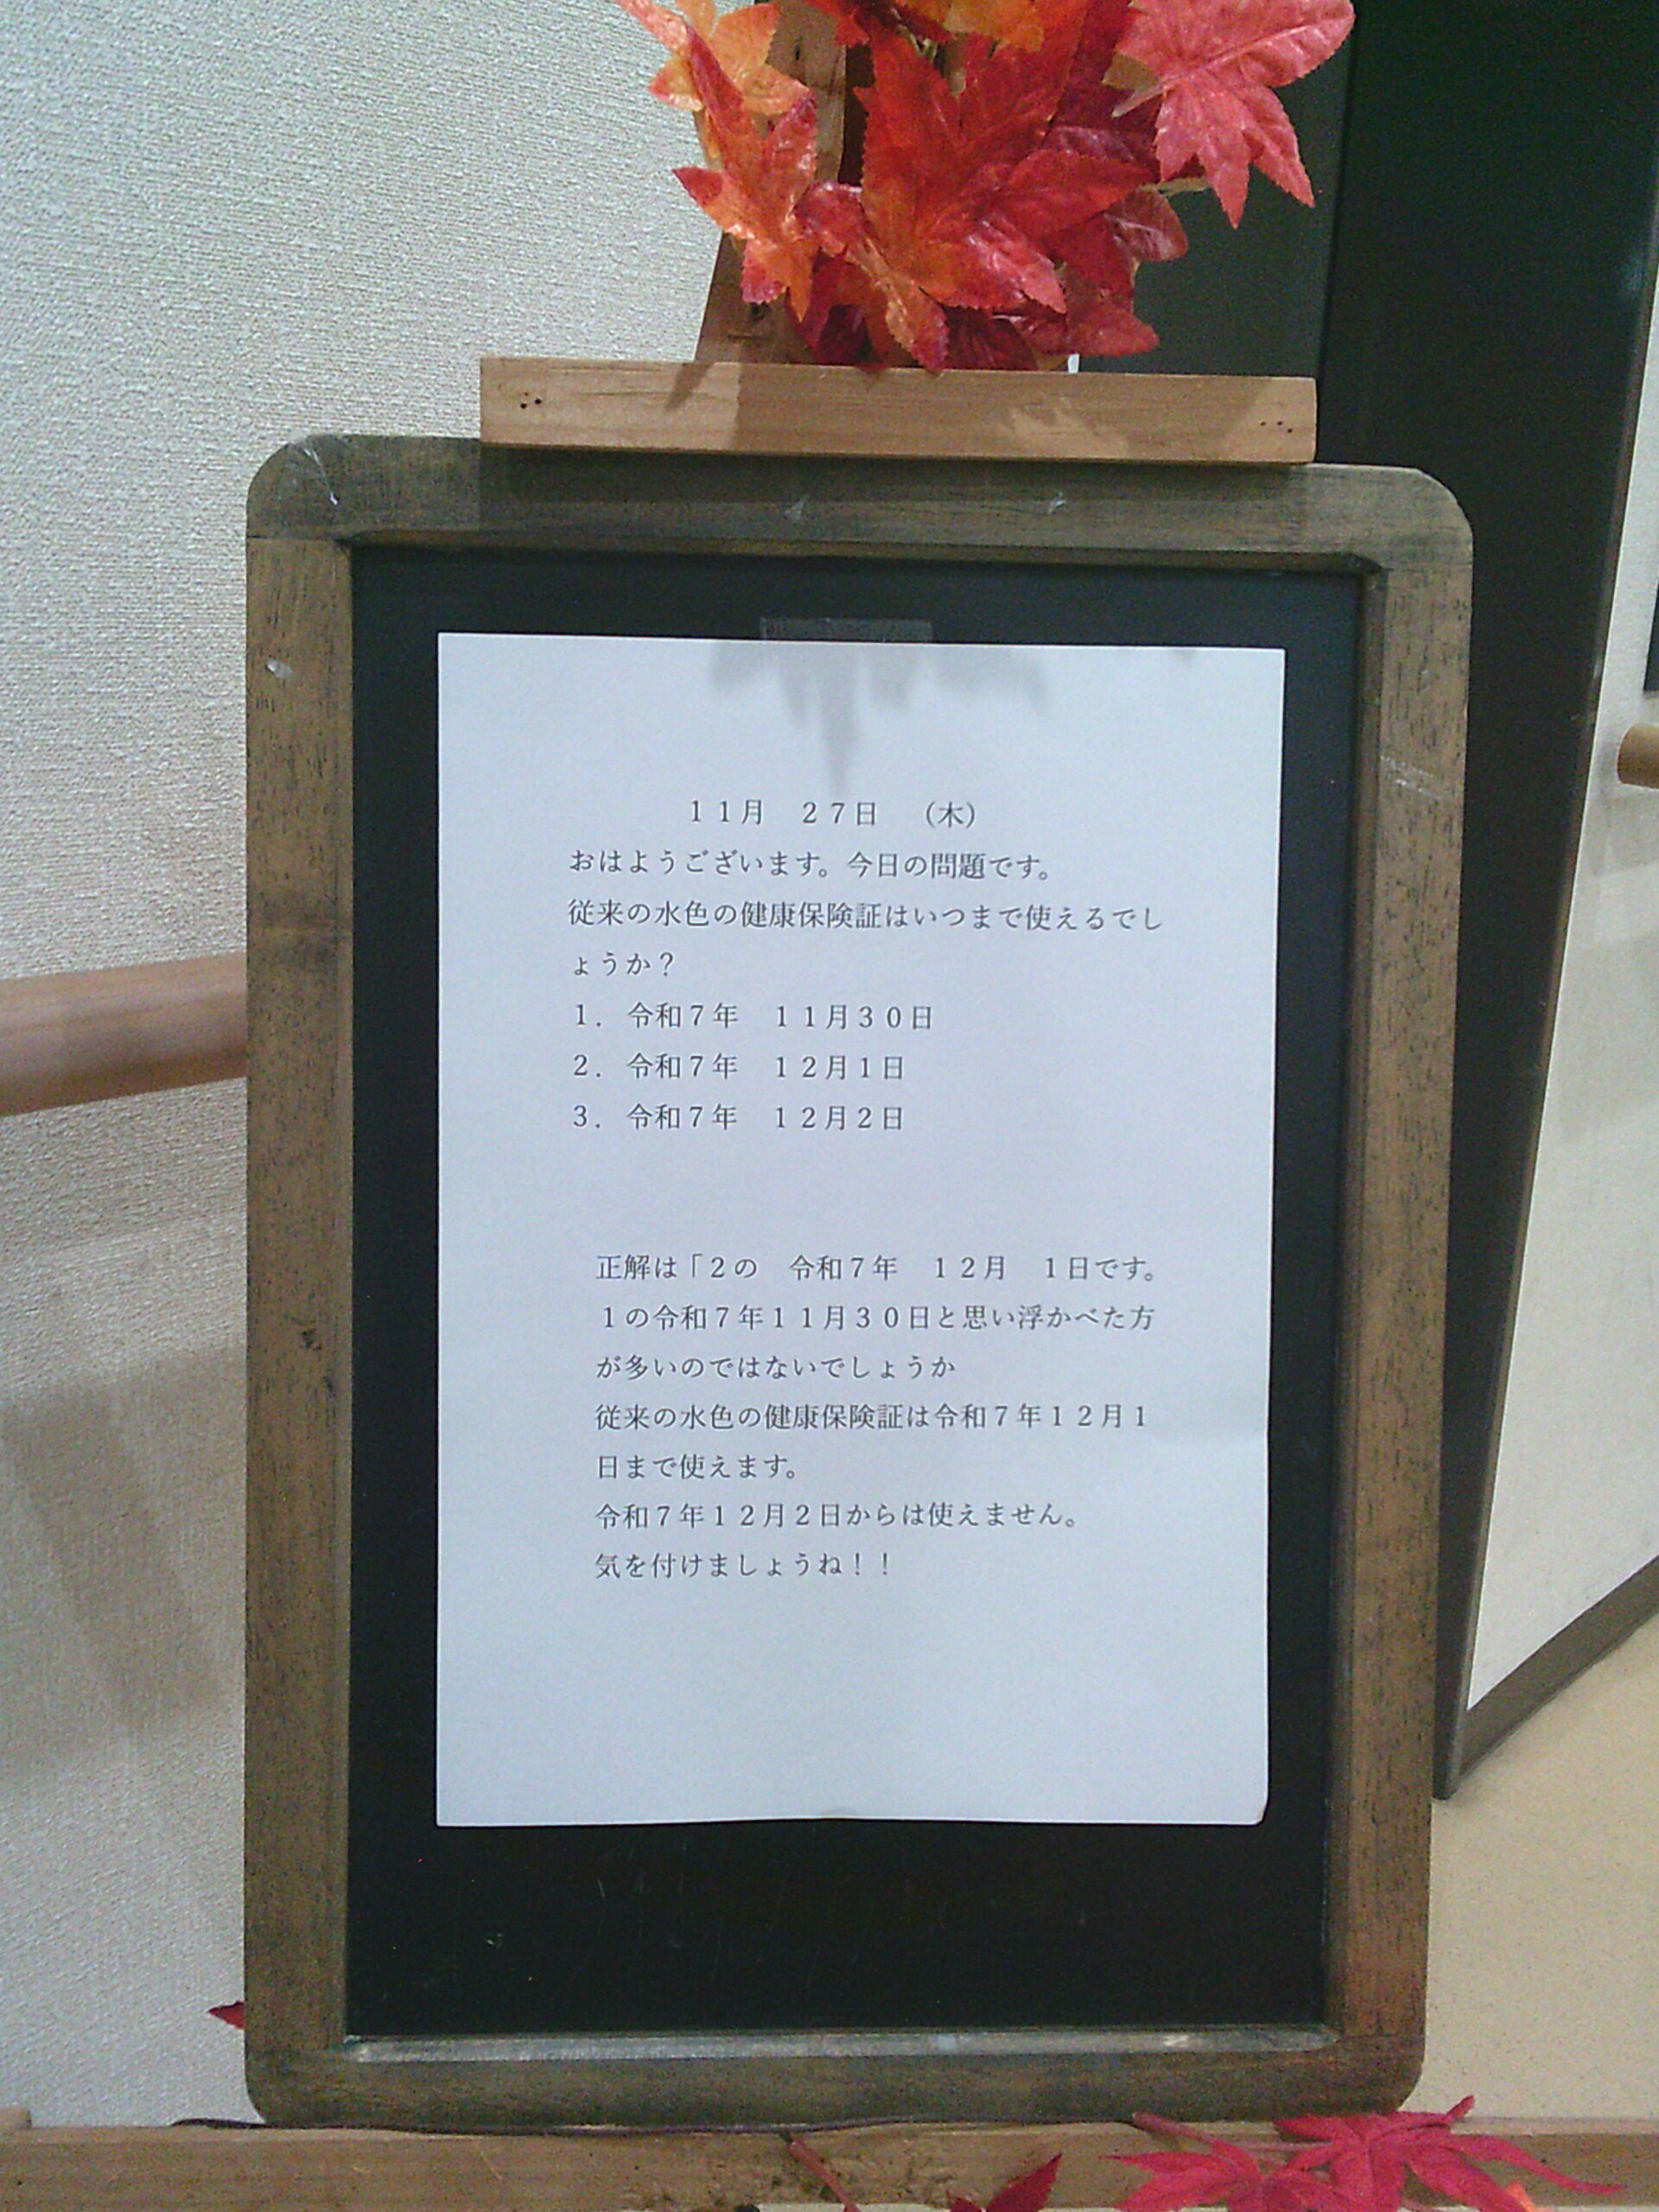 １１月　２７日　（木）
おはようございます。今日の問題です。
従来の水色の健康保険証はいつまで使えるでし
ょうか？
１．令和７年　１１月３０日
２．令和７年　１２月１日
３．令和７年　１２月２日
正解は「２の　令和７年　１２月　１日です。
１の令和７年１１月３０日と思い浮かべた方
が多いのではないでしょうか
従来の水色の健康保険証は令和７年１２月１
日まで使えます。
令和７年１２月２日からは使えません。
気を付けましょうね！！